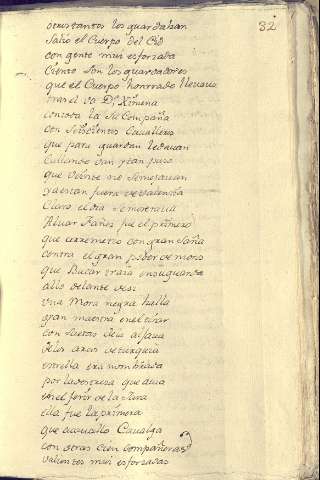 32
otros tantos los guardaban
salio el Cuerpo del Cid
con gente mui esforzada
Ciento son los guardadores
que el Cuerpo honrrado llevava
tras el va Dª Ximena
con toda la su Compaña
con seiscientos Cavalleros
que para guardar le davan
Callando van y tan paso
que veinte no semejavan
ya estan fuera de Valencia
Claro el dia se mostrava
Alvar Fañez fue el primero
que arremetio con gran saña
contra el gran poder de moros
que Bucar traia en su guarda
allo delante de si
una Mora negra halla
gran maestra en el tirar
con saetas de la aljava
de los arcos de turquia
estrella era nombrada
por la destreza que avia
en el ferir de la Jara
ella fue la primera
que a cavallo Cavalga
con otras Cien compañeras
valientes mui esforzadas